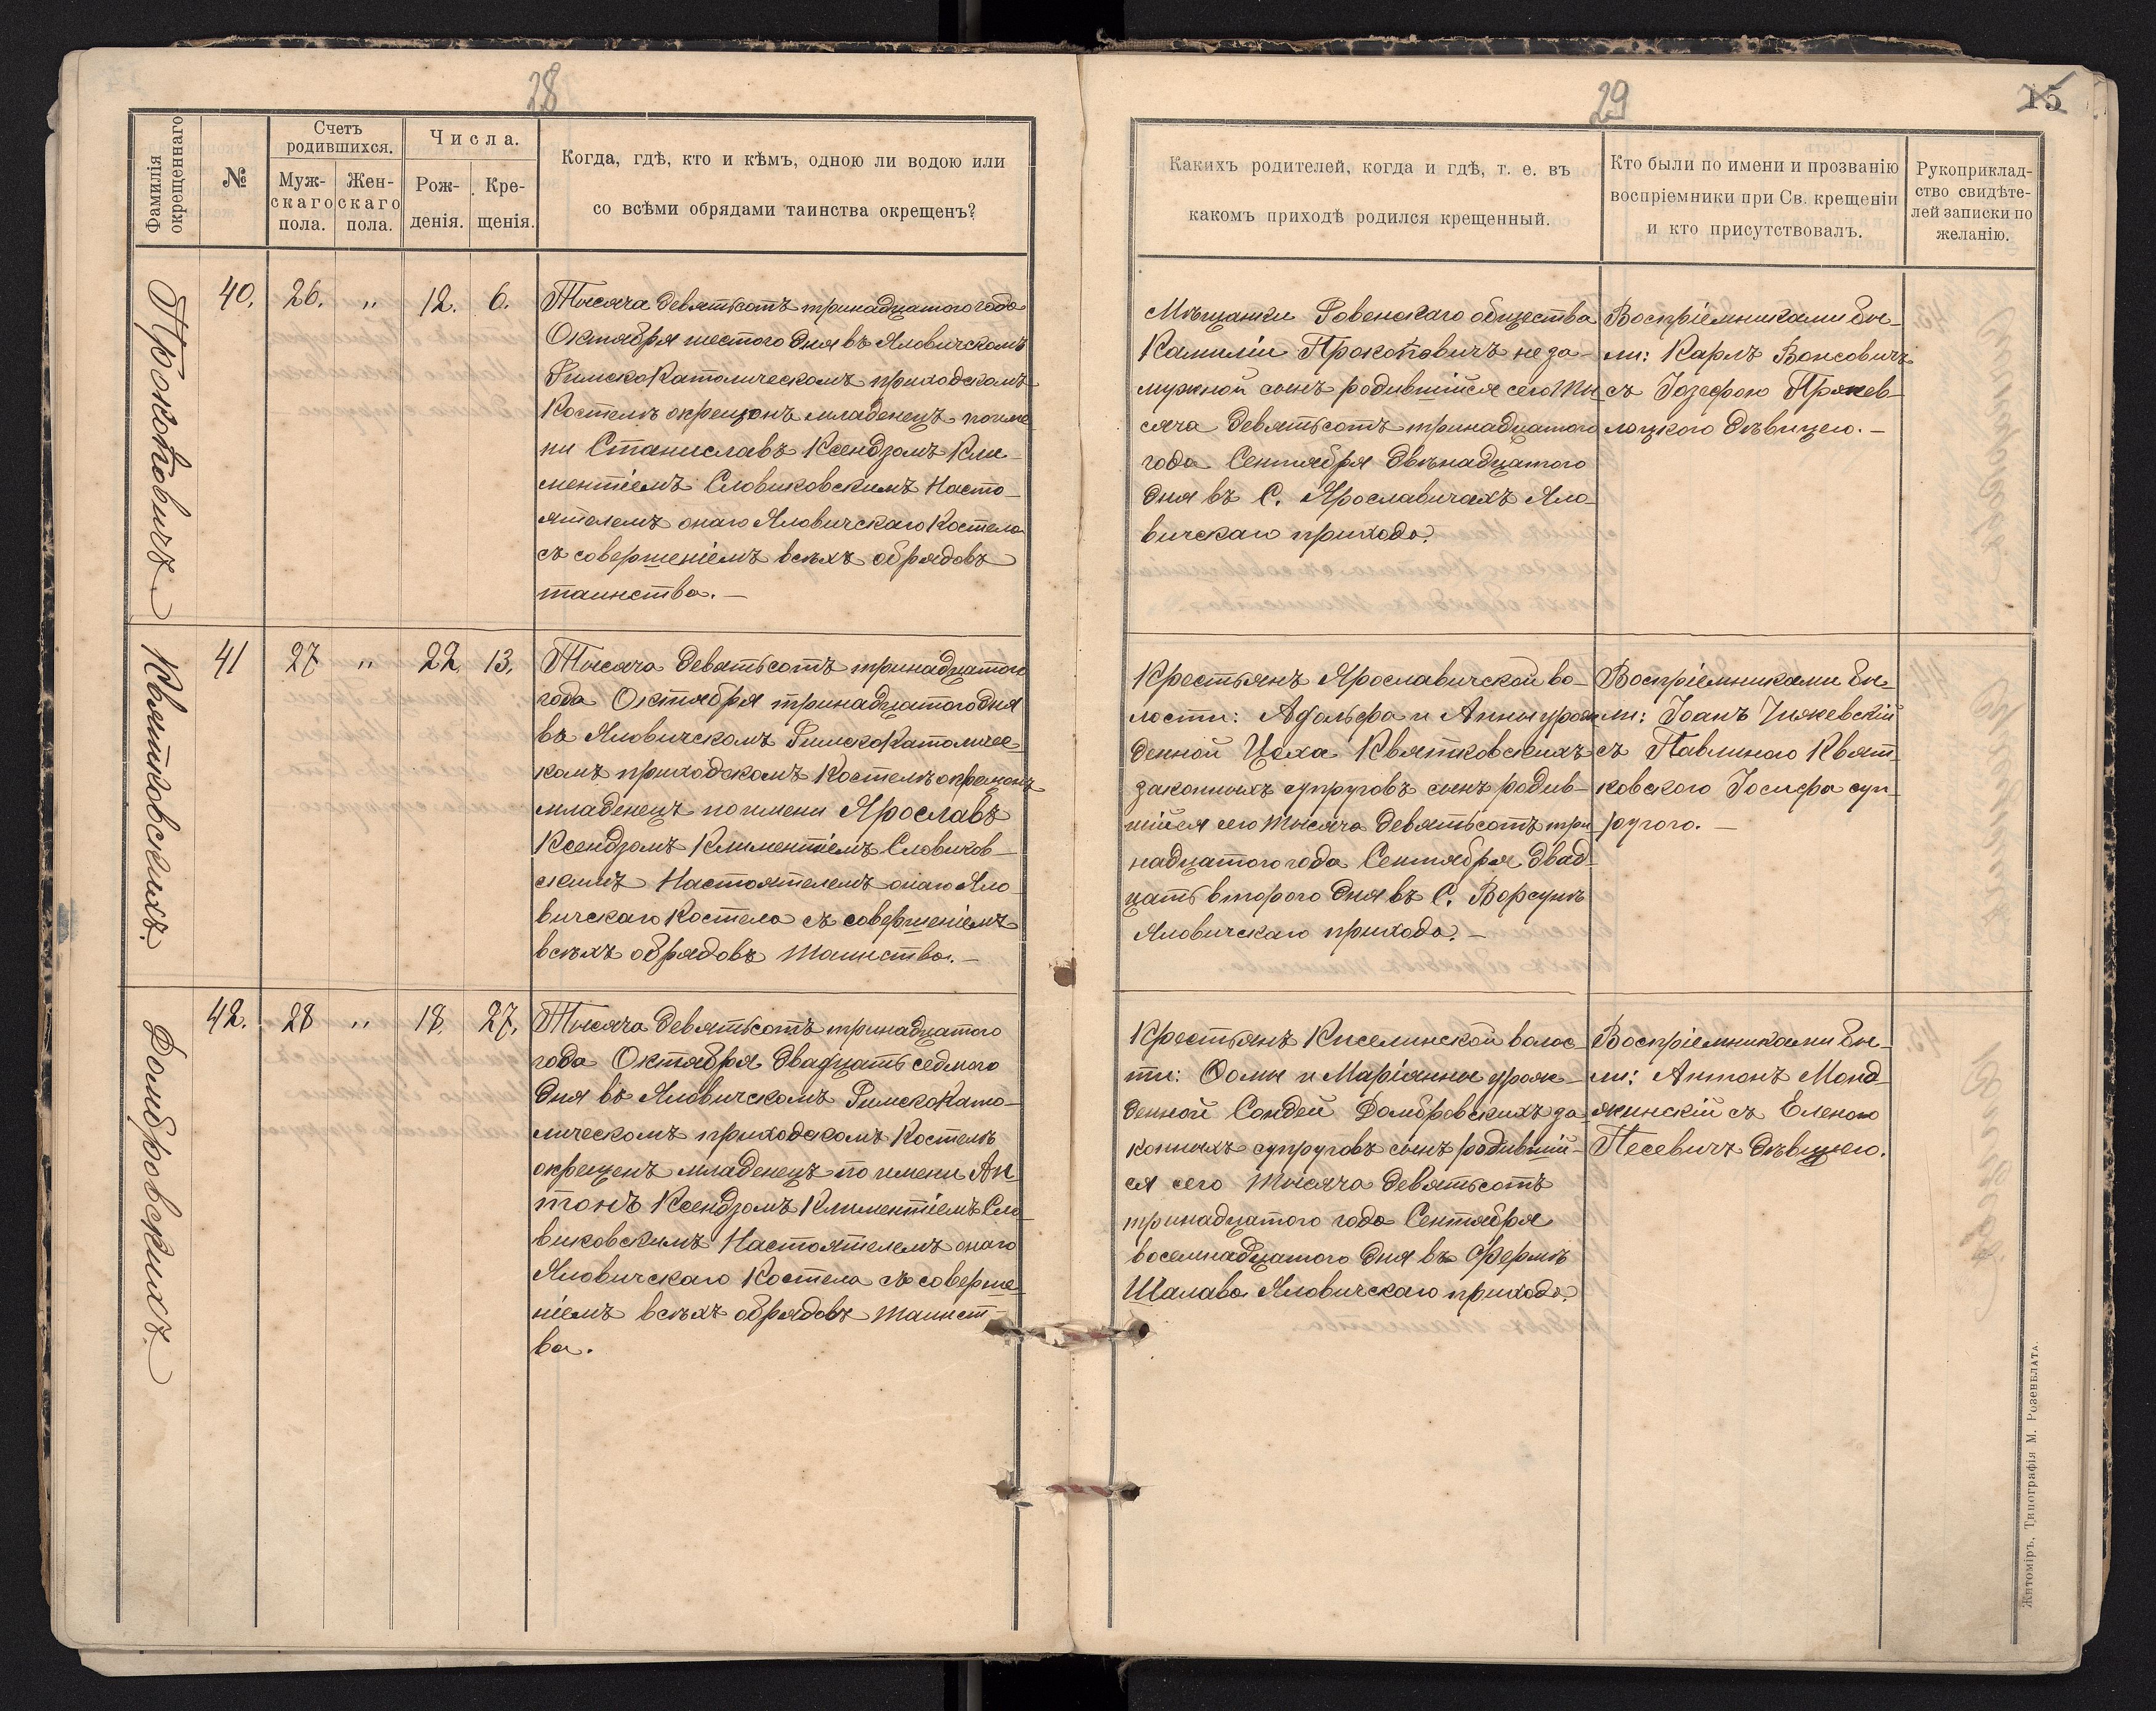 28
Фамилія
окрещеннаго
№
Счетъ
родившихся.
Муж-
скаго
пола.
Жен-
скаго
пола.
Числа.
Рож-
денія.
Кре-
щенія.
Когда, гдѣ, кто и кѣмъ, одною ли водою или
со всѣми обрядами таинства окрещенъ?
Прокоповичъ
40.
26.
"
12.
6.
Тысяча девятьсотъ тринадцатого года
Октября шестого дня въ Яловичскомъ
РимскоКатолическомъ приходскомъ
Костелѣ окрещонъ младенецъ по име
ни Станиславъ Ксендзомъ Кли-
ментіемъ Словиковскимъ Насто-
ятелемъ онаго Яловичскаго Костела
съ совершеніемъ всѣхъ обрядовъ
таинства. —
Квятковскихъ.
41
27
"
22
13.
Тысяча девятьсотъ тринадцатого
года Октября тринадцатого дня
въ Яловичскомъ РимскоКатоличес-
комъ приходскомъ Костелѣ окрещонъ
младенецъ по имени Ярославъ
Ксендзомъ Климентіемъ Словиков-
скимъ Настоятелемъ онаго Яло
вичскаго Костела съ совершеніемъ
всѣхъ обрядовъ таинства. —
Домбровскихъ.
42.
28
"
18.
27.
Тысяча девятьсотъ тринадцатого
года Октября двадцать седмого
дня въ Яловичскомъ РимскоКато-
лическомъ приходскомъ Костелѣ
окрещенъ младенецъ по имени Ан
тонъ Ксендзомъ Климентіемъ Сло
виковскимъ Настоятелемъ онаго
Яловичскаго Костела съ соверше
ніемъ всѣхъ обрядовъ таинст-
ва.
29
15
Какихъ родителей, когда и гдѣ, т. е. въ
какомъ приходѣ родился крещенный.
Кто были по имени и прозванію
воспріемники при Св. крещеніи
и кто присутствовалъ.
Рукоприклад-
ство свидѣте-
лей записки по
желанію.
Мѣщанки Ровенскаго общества
Камиліи Прокоповичъ не за-
мужной сынъ родившійся сего ты
сяча девятьсотъ тринадцатого
года Сентября двѣнадцатого
дня въ С. Ярославичахъ Яло-
вичскаго прихода.
Воспріемниками бы-
ли: Карлъ Вонсовичъ
съ Іозефою Пржев-
лоцкого дѣвицею. —
Крестьянъ Ярославичской во-
лости: Адольфа и Анны урож
денной Цоха Квятковскихъ
законныхъ супруговъ сынъ родив-
шійся сего тысяча девятьсотъ три
надцатого года Сентября двад-
цать второго дня въ С. Ворсунѣ
Яловичскаго прихода. —
Воспріемниками бы-
ли: Іоанъ Чижевскій
съ Павлиною Квят
ковского Іосифа суп-
ругого. —
Крестьянъ Киселинской волос-
ти: Ѳомы и Маріянны урож-
денной Сондей Домбровскихъ за-
конныхъ супруговъ сынъ родивший-
ся сего тысяча девятьсотъ
тринадцатого года Сентября
восемнадцатого дня въ Фермѣ
Шалава Яловичскаго прихода.
Воспріемниками бы-
ли: Антонъ Монд-
жинскій съ Еленою
Песевичъ дѣвицею.
Житоміръ, Типографія М. Розенблата.